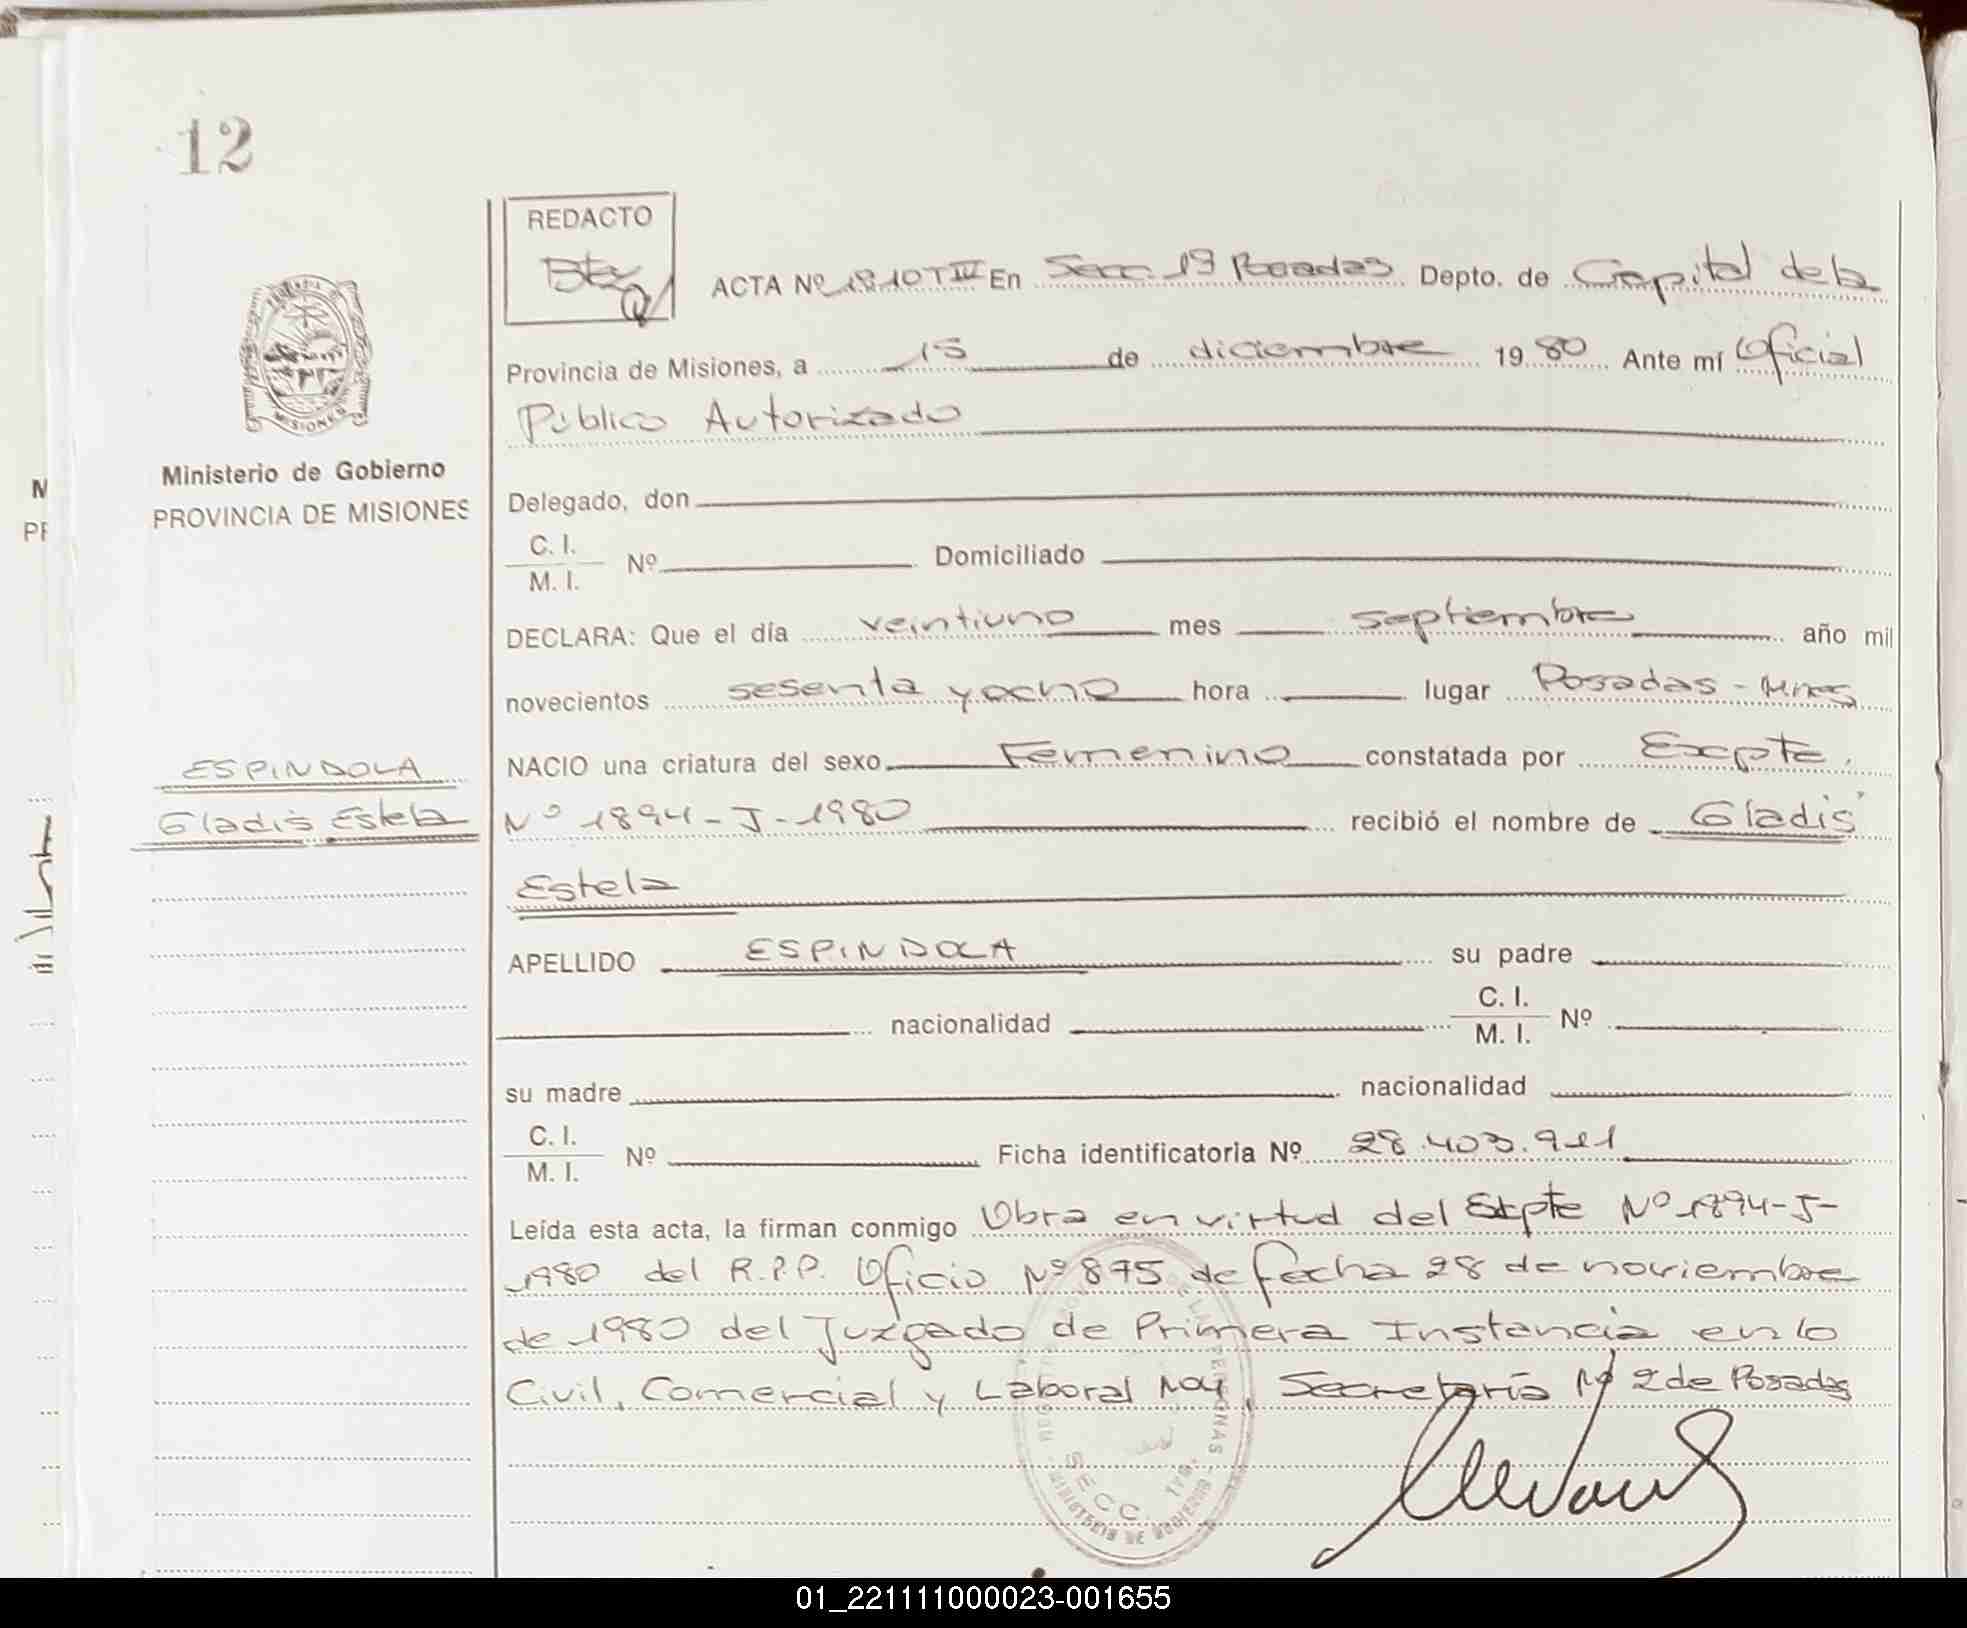 12
REDACTO
ACTA Nº 1810 T IV En Secc. 1ª Posadas Depto. de Capital de la
Provincia de Misiones, a 15 de diciembre 1980 Ante mí Oficial
Público Autorizado
Ministerio de Gobierno
PROVINCIA DE MISIONES
Delegado, don
C. I.
M. I. Nº Domiciliado
DECLARA: Que el día veintiuno mes septiembre año mil
novecientos sesenta y ocho hora lugar Posadas - Mnes
NACIO una criatura del sexo Femenino constatada por Excpte.
ESPINDOLA
Gladis Estela
Nº 1894-J-1980 recibió el nombre de Gladis
Estela
APELLIDO ESPINDOLA su padre
nacionalidad C. I.
M. I. Nº
su madre nacionalidad
C. I.
M. I. Nº Ficha identificatoria Nº 28.403.911
Leída esta acta, la firman conmigo Obra en virtud del Expte Nº 1894-J-
1980 del R.P.P. Oficio Nº 875 de fecha 28 de noviembre
de 1980 del Juzgado de Primera Instancia en lo
Civil, Comercial y Laboral Nº4, Secretaría Nº 2 de Posadas
SECC.
MINISTERIO DE GOBIERNO
01_221111000023-001655